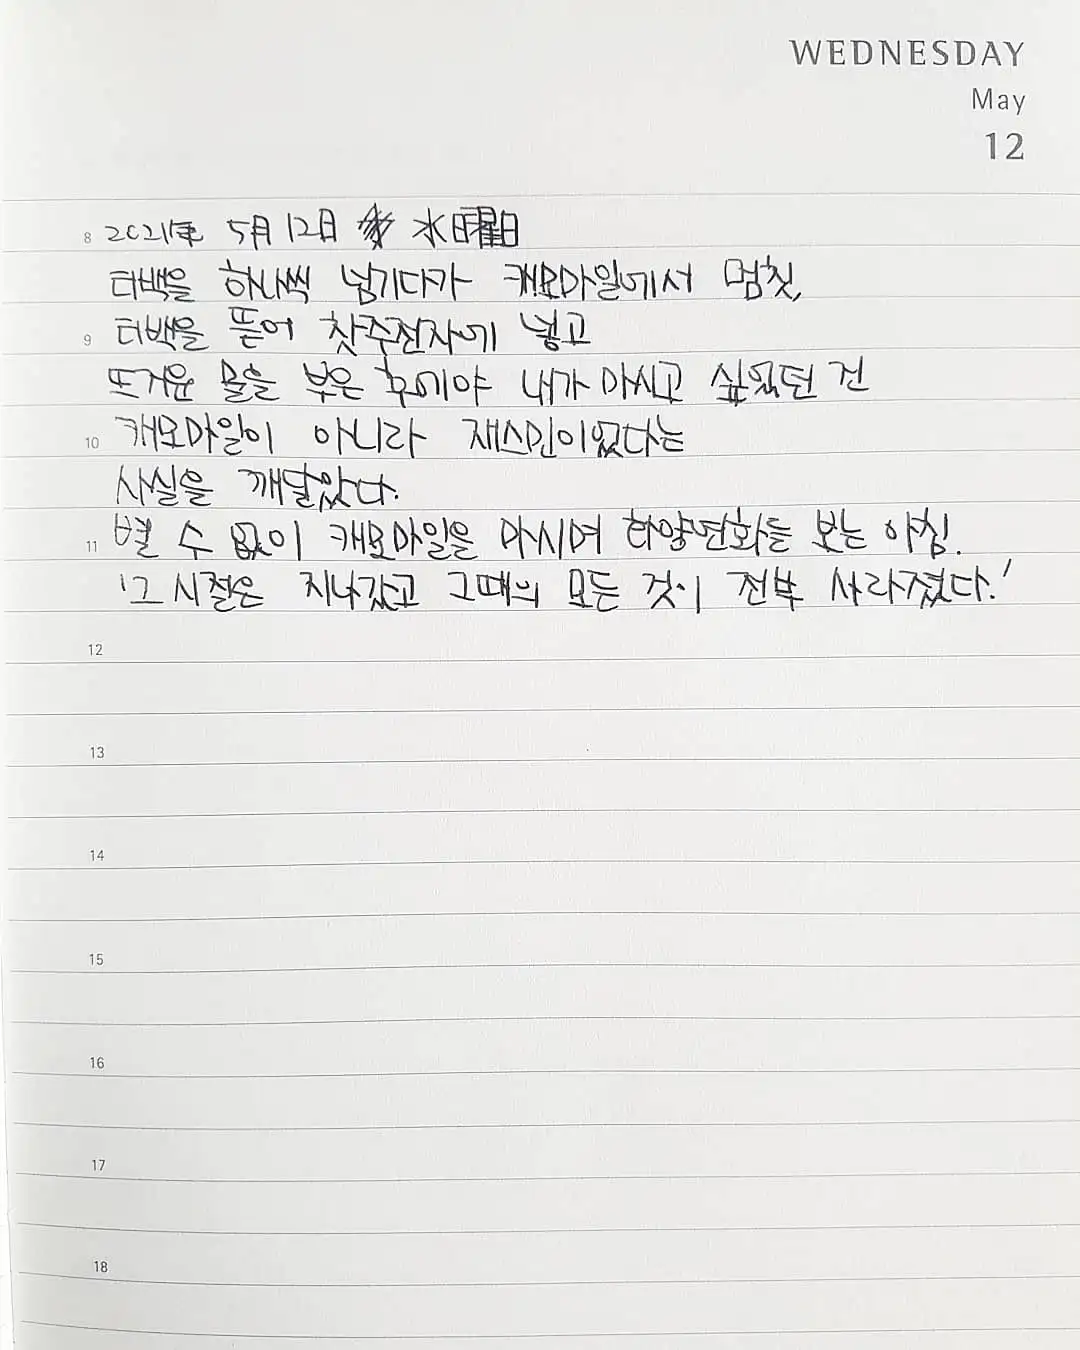 WEDNESDAY
May
12
8 2021年 5月 12日 水曜日
티백을 하나씩 넘기다가 캐모마일에서 멈칫,
9 티백을 뜯어 찻주전자에 넣고
뜨거운 물을 부은 후에야 내가 마시고 싶었던 건
10 캐모마일이 아니라 재스민이었다는
사실을 깨달았다.
11 별 수 없이 캐모마일을 마시며 화양연화를 보는 아침.
'그 시절은 지나갔고 그때의 모든 것이 전부 사라졌다.'
12
13
14
15
16
17
18